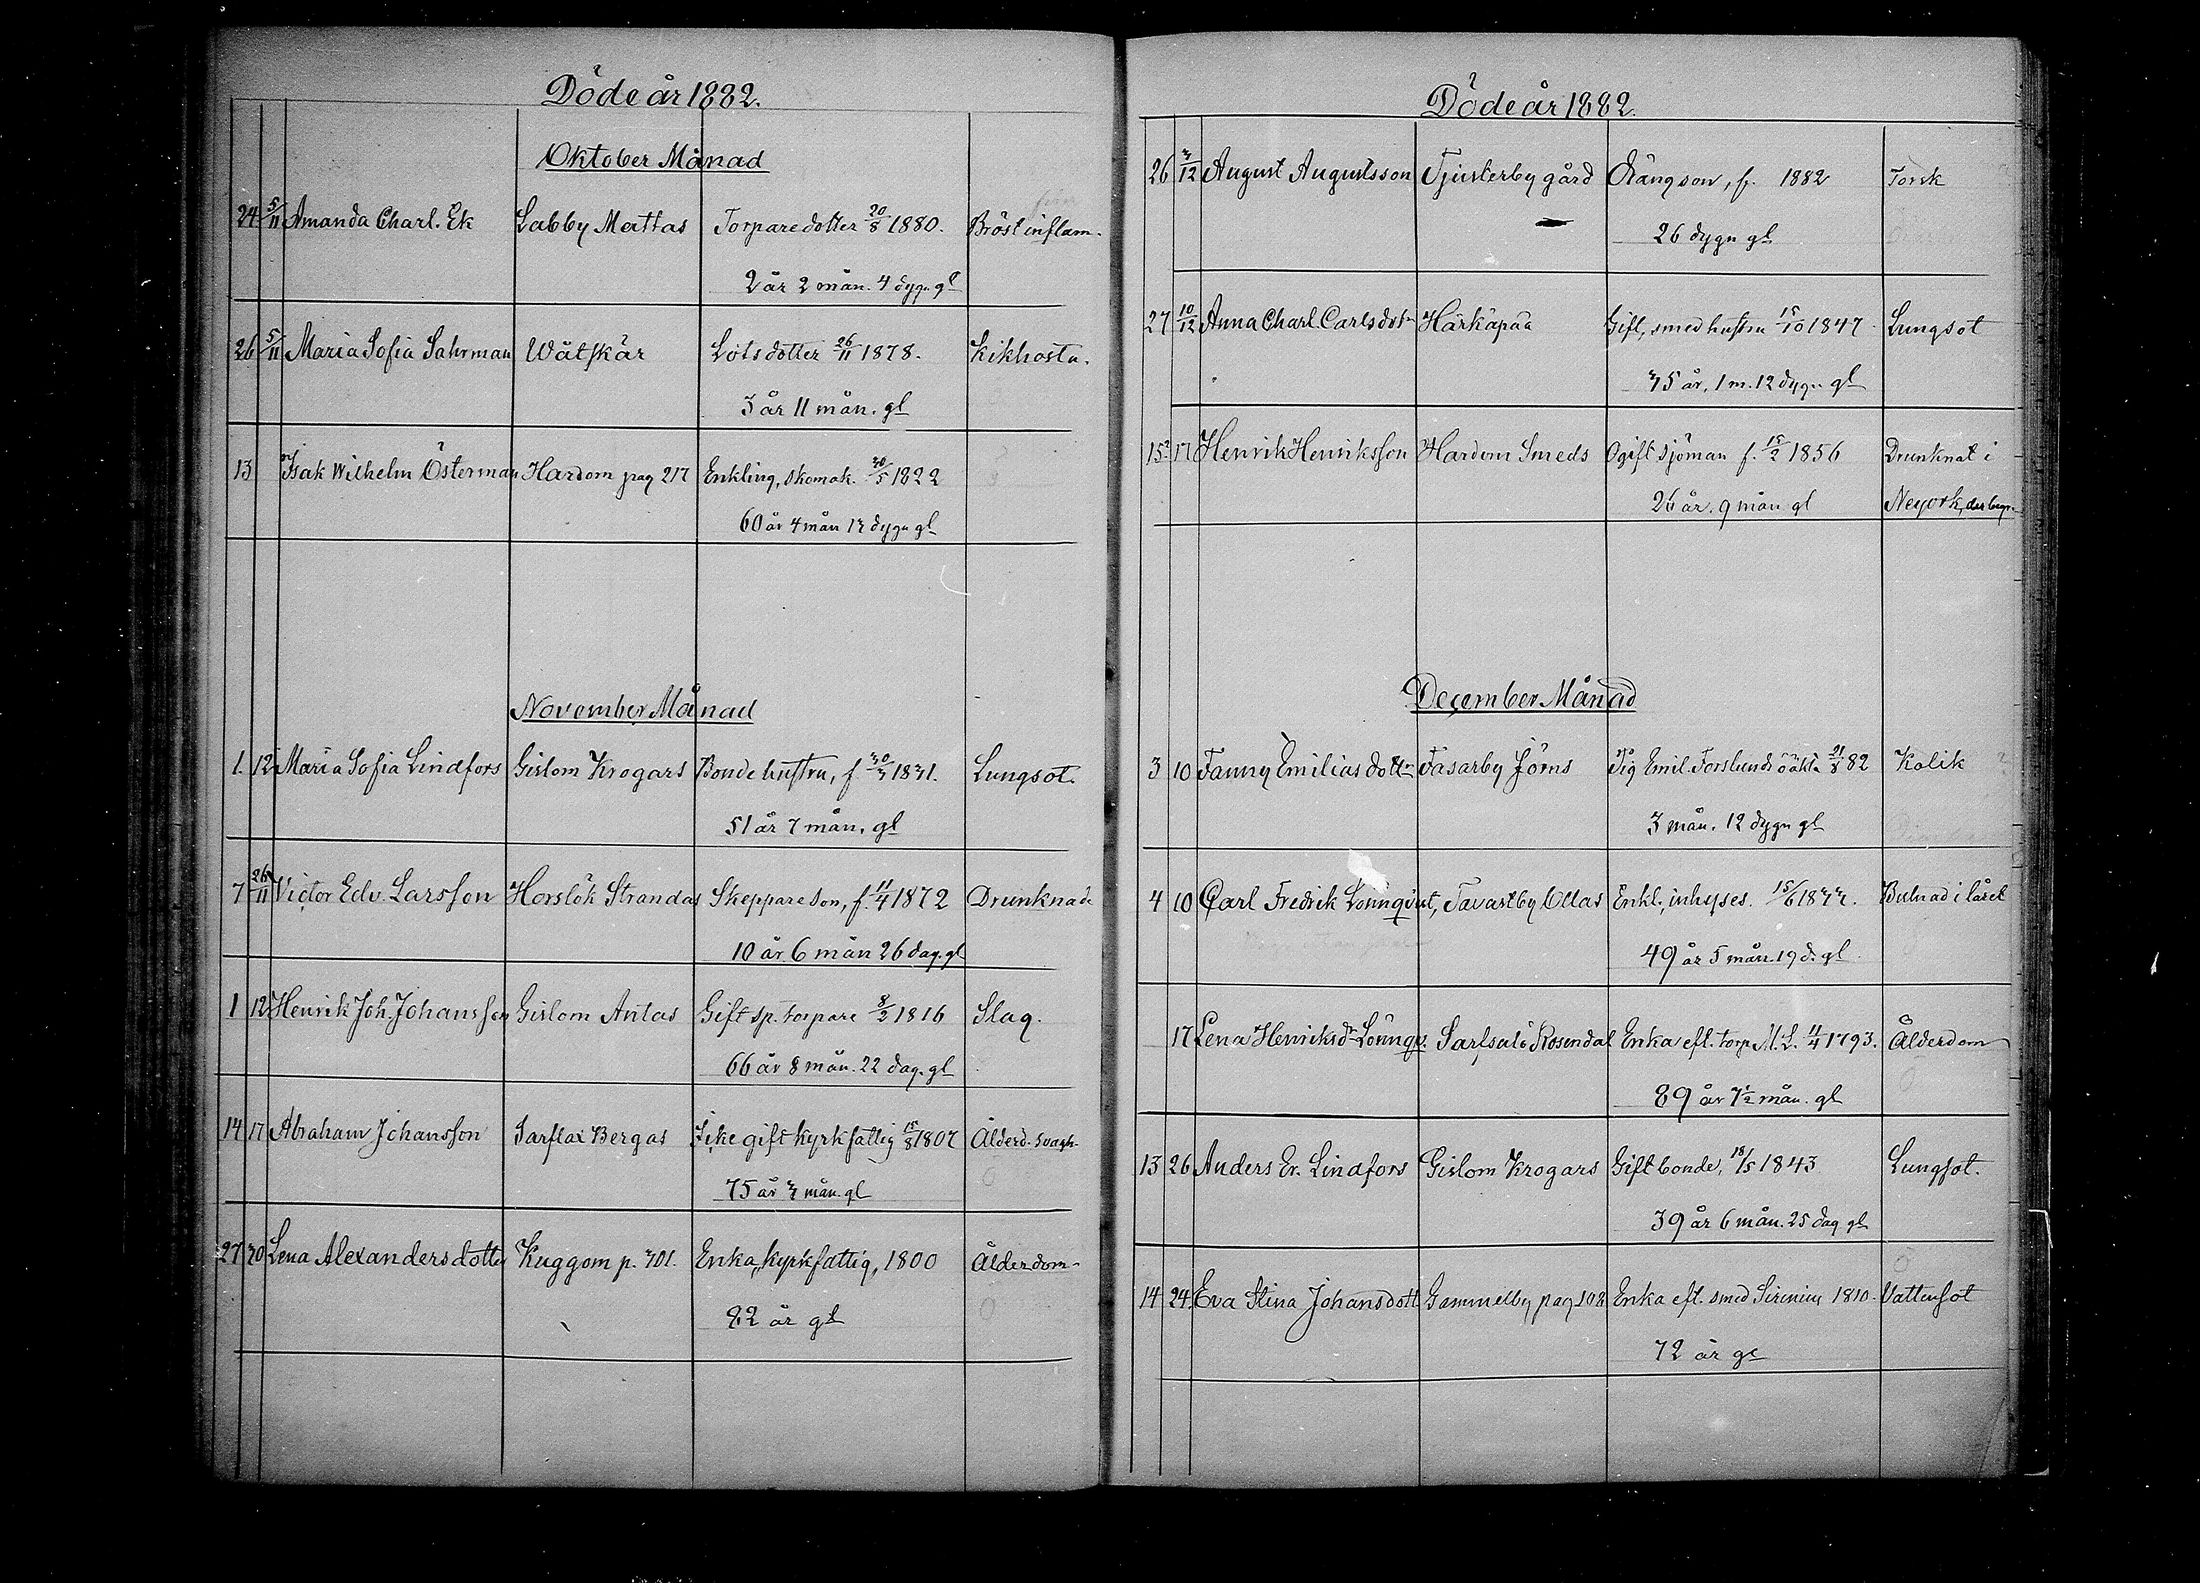 Döde år 1882.
Oktober Månad
24 5/11 Amanda Charl. Ek Labby Mattas Torparedotter 20/8 1880. Bröstinflam.
2 år 2 mån. 4 dygn gl
26 5/11 Maria Sofia Sahrman Wåtskär Lotsdotter 26/11 1878. Kikhosta.
3 år 11 mån. gl
13 Isak Wilhelm Österman Hardom pag 217 Enkling, skomak. 30/5 1822
60 år 4 mån 13 dygn gl
November Månad
1. 12 Maria Sofia Lindfors Gislom Krogars Bondehustru, f. 30/3 1831. Lungsot.
51 år 7 mån. gl
7 26/11 Victor Edv. Larsson Horslök Strandas Skeppareson, f. 11/4 1872 Drunknad
10 år 6 mån 26 dag. gl
1 12 Henrik Joh. Johansson Gislom Antas Gift sp. torpare 8/2 1816 Slag.
66 år 8 mån. 22 dag. gl
14 17 Abraham Johansson Sarflax Bergas Icke gift kyrkfattig 15/8 1807 Ålderd. svagh.
75 år 3 mån. gl
27 30 Lena Alexandersdotter Kuggom p. 301. Enka, kyrkfattig, 1800 Ålderdom.
82 år gl
Döde år 1882.
26 3/12 August Augustsson Tjusterby gård Drängson, f. 1882 Torsk
26 dygn gl
27 10/12 Anna Charl. Carlsdotr Härkäpää Gift, smedhustru 15/10 1847. Lungsot
35 år, 1 m. 12 dygn gl
15? 17 Henrik Henriksson Hardom Smeds Ogift sjöman f. 15/2 1856 Drunknat i
26 år. 9 mån gl Neyork, der begr.
December Månad
3 10 Fanny Emiliasdottr Fasarby Jörns Pig Emil. Forslunds oäkta 21/8 82 Kolik
3 mån. 12 dygn gl
4 10 Carl Fredrik Lönnqvist, Tavastby Ollas Enkl., inhyses. 15/6 1833. Bulnad i låret
49 år 5 mån. 19 d. gl
17 Lena Henriksdr Lönnqv. Sarfsalö Rosendal Enka eft. torp M. L. 4/4 1793. Ålderdom
89 år 7 1/2 mån. gl
13 26 Anders Er. Lindfors Gislom Krogars Gift bonde, 18/5 1843 Lungsot.
39 år 6 mån. 25 dag gl
14 24. Eva Stina Johansdott Gammelby pag 108 Enka eft. smed Sirenius 1810. Vattusot
72 år gl